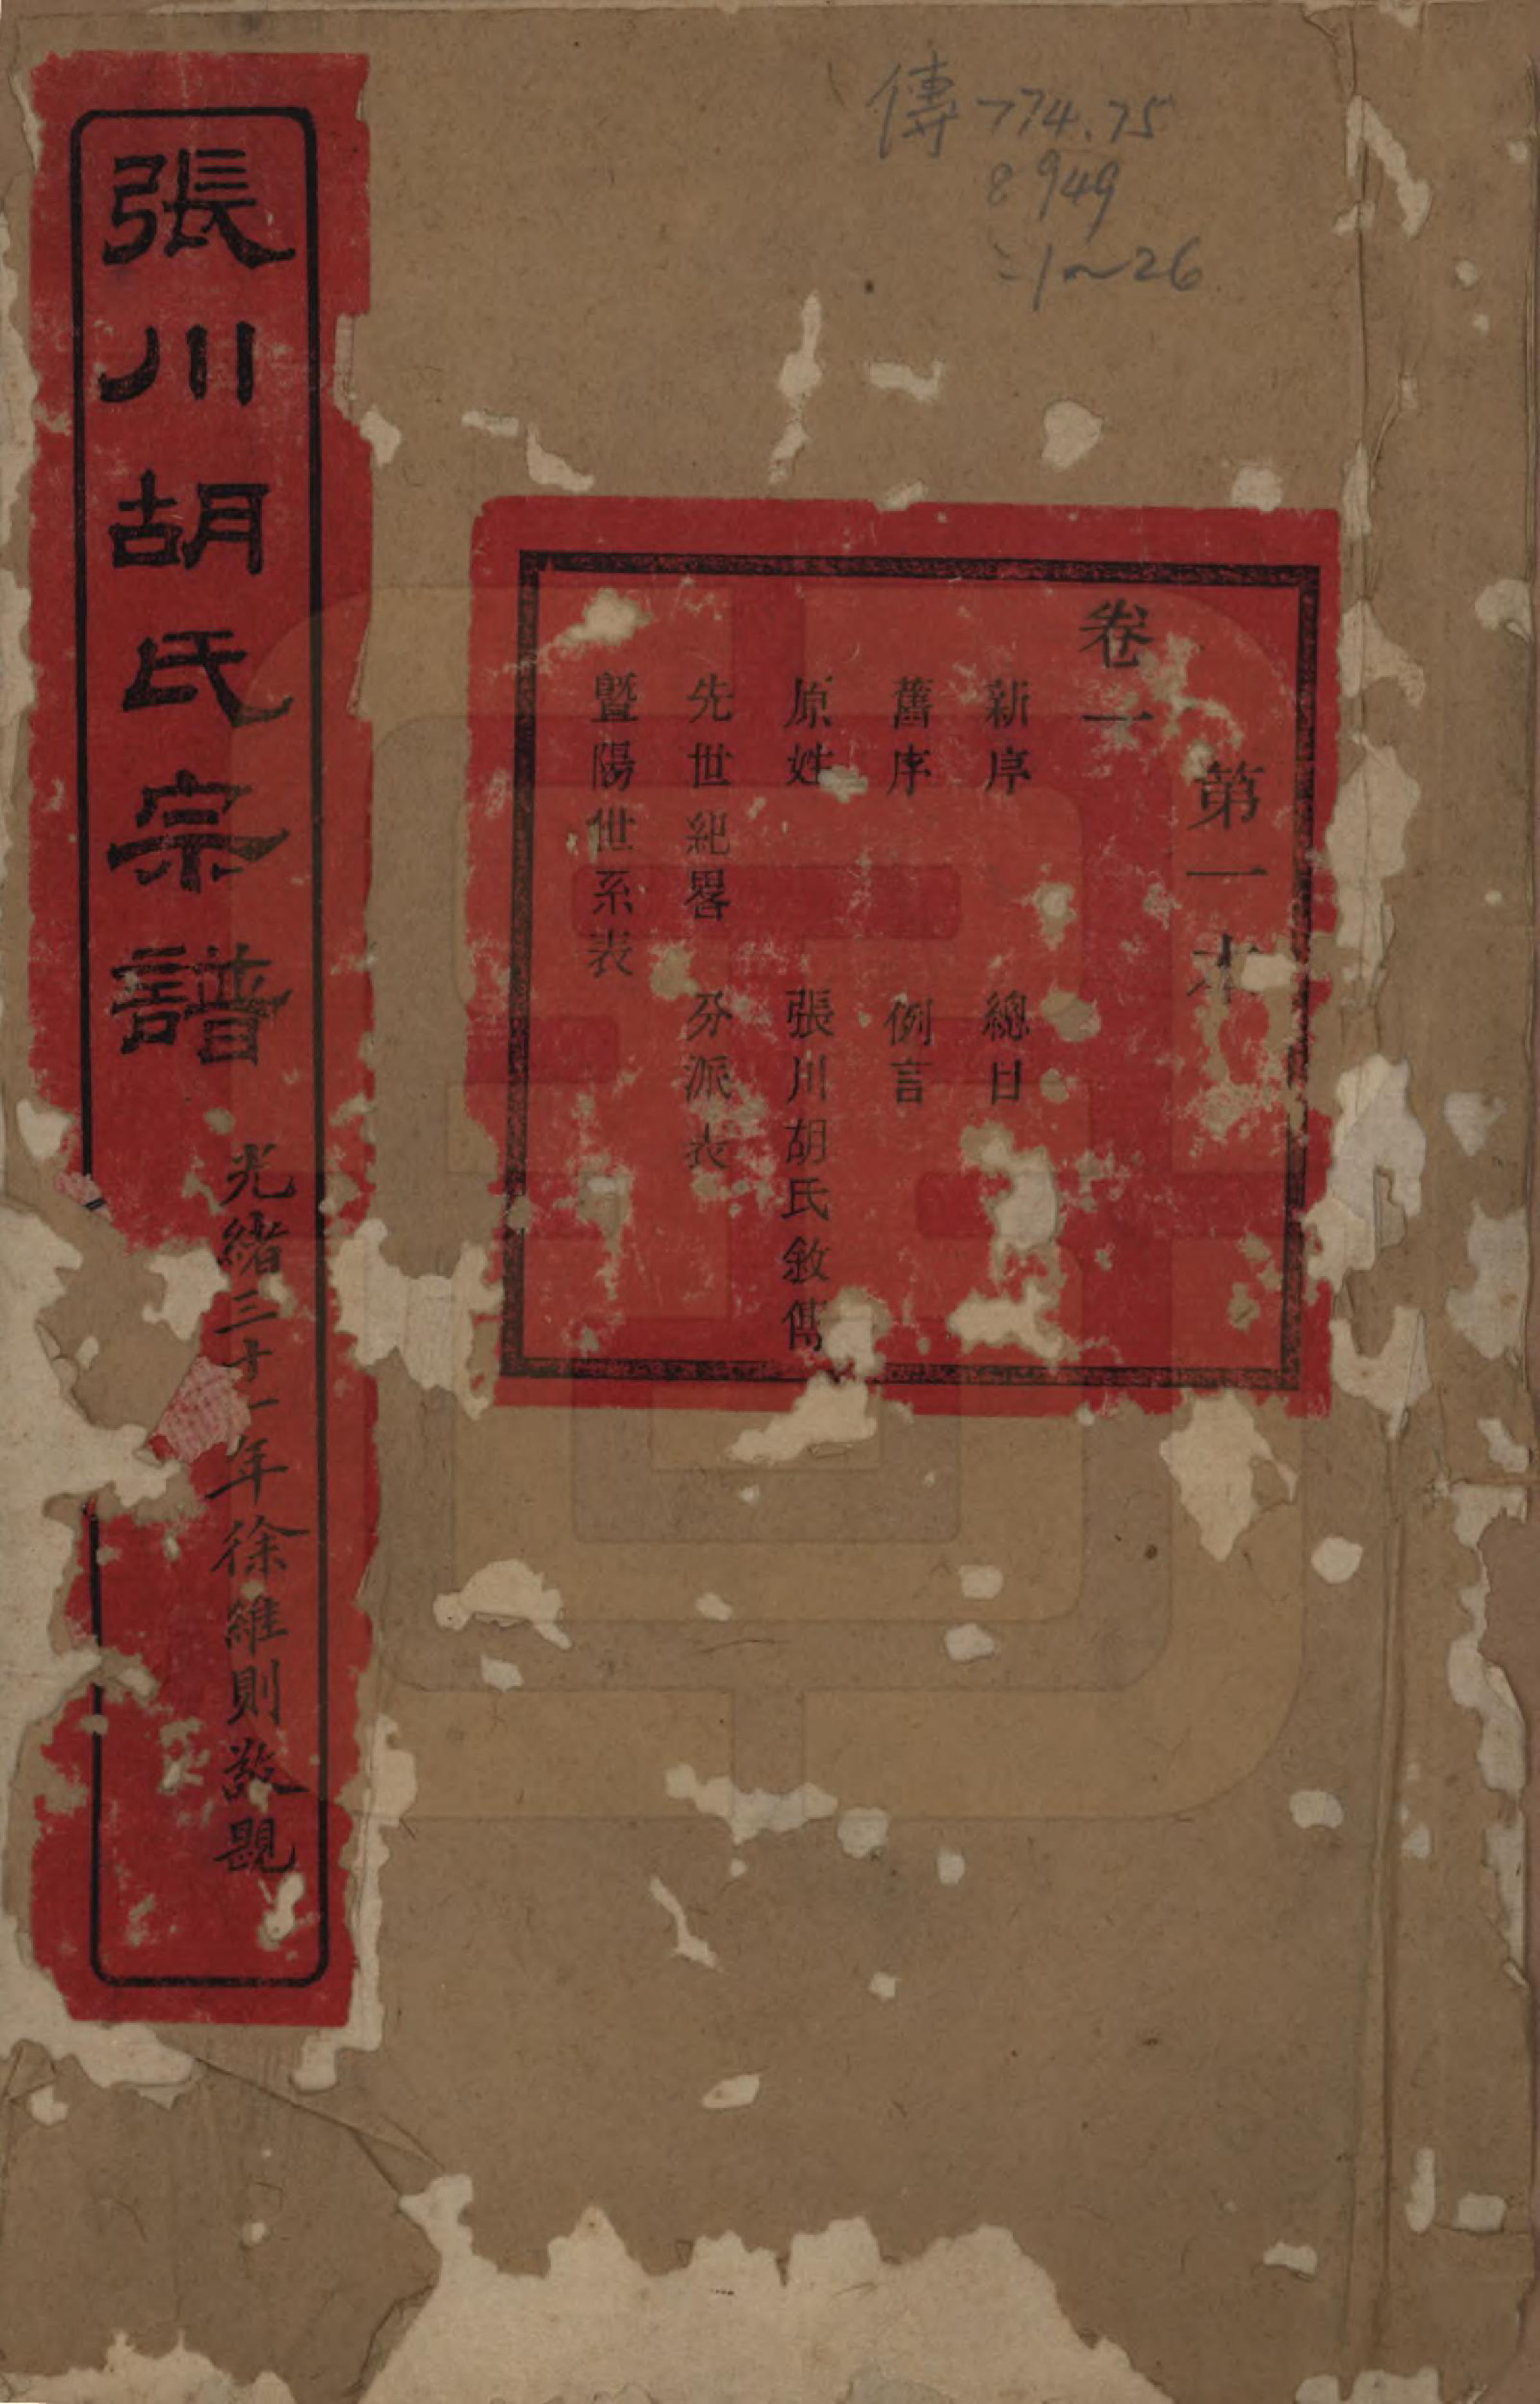 傳 774.75
8949
:1~26
第一本
卷一
新序 總目
舊序 例言
原姓 張川胡氏敘傳
先世紀畧 分派表
暨陽世系表
張川胡氏宗譜
光緒三十一年徐維則敬題